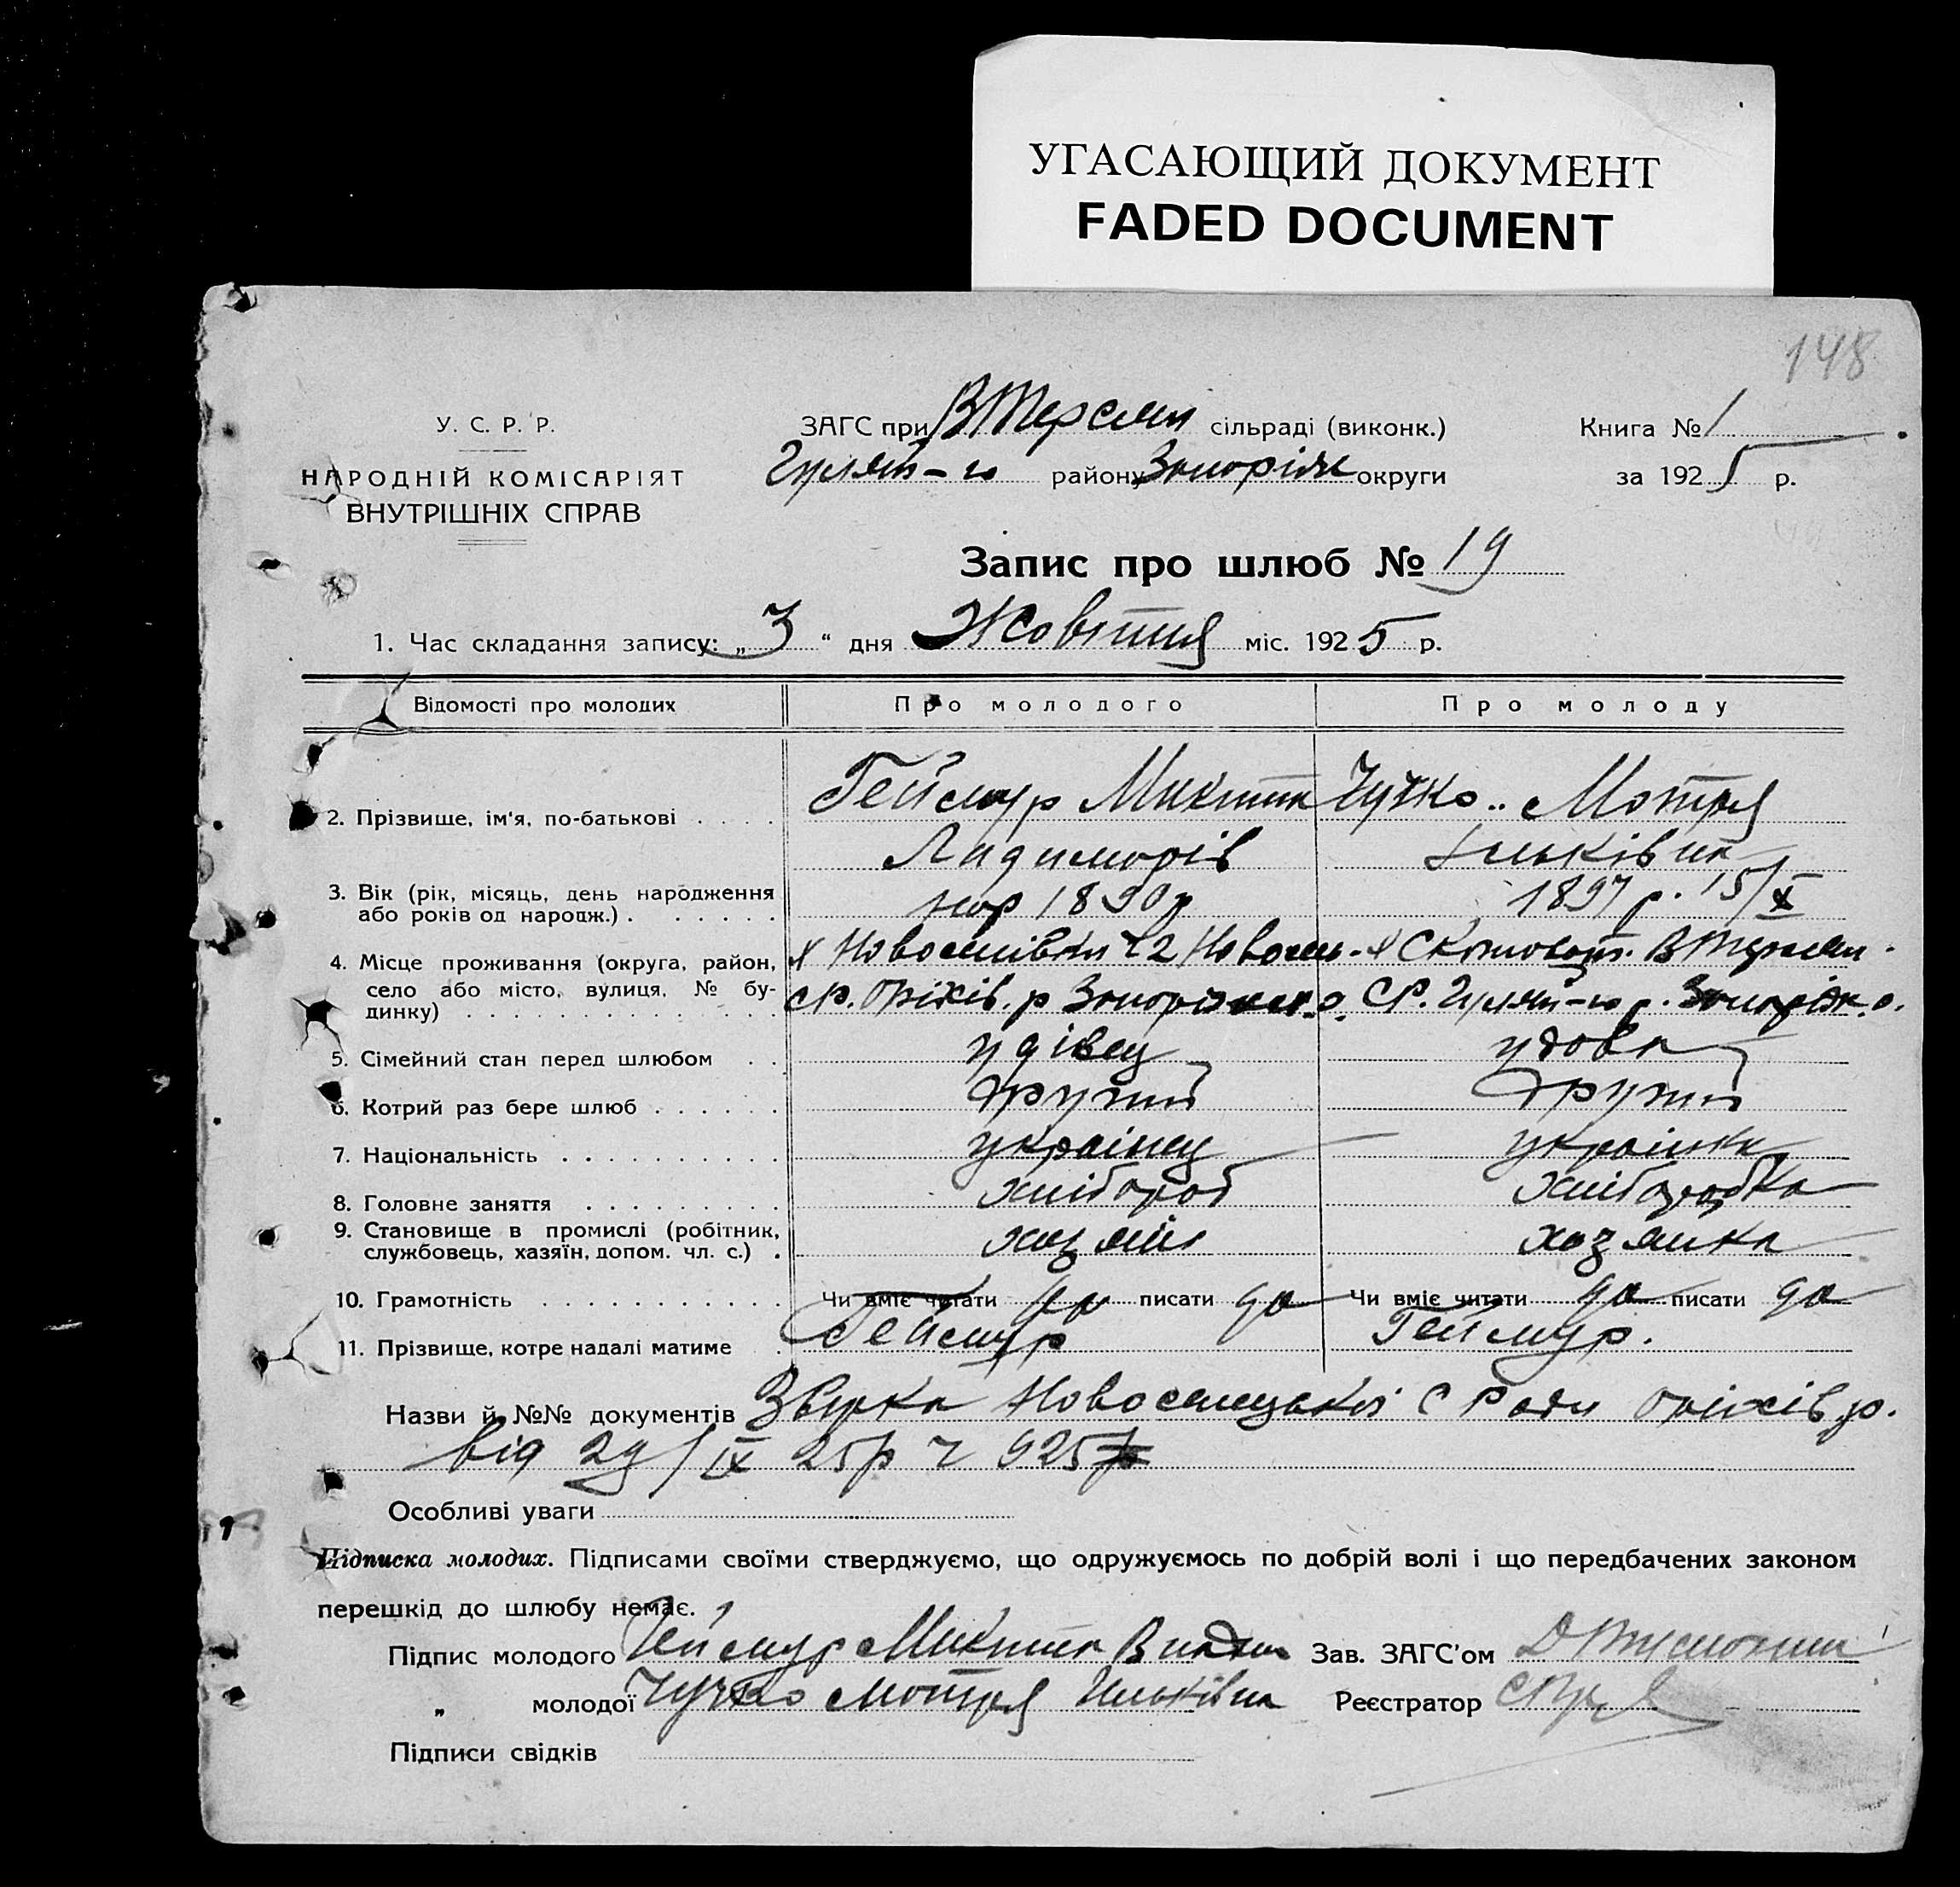 УГАСАЮЩИЙ ДОКУМЕНТ
FADED DOCUMENT
148
У. С. Р. Р.
НАРОДНІЙ КОМІСАРІЯТ
ВНУТРІШНІХ СПРАВ
ЗАГС при ВТерсян сільраді (виконк.)
Гуляй-го району Запоріж округи
Книга № 1
за 1925 р.
Запис про шлюб № 19
1. Час складання запису: „3“ дня Жовтня міс. 1925 р.
Відомості про молодих Про молодого Про молоду
2. Прізвище, ім'я, по-батькові . . . . Геймур Микита Чучко Мотря
Ільківна
3. Вік (рік, місяць, день народження
або років од народж.) . . . . . . 1890р 1897 р. 15/X
4. Місце проживання (округа, район,
село або місто, вулиця, № бу-
динку) х Новоселівки Ч2 Новосель- х Скотоват. ВТерсян.
СР. Оріхів. р Запорізьк. о. СР. Гуляй-го р. Запоріж. о.
5. Сімейний стан перед шлюбом . . удівец удова
6. Котрий раз бере шлюб . . . . . . другий другий
7. Національність . . . . . . . . . . українец українка
8. Головне заняття . . . . . . . . . хлібороб хліборобка
9. Становище в промислі (робітник,
службовець, хазяїн, допом. чл. с.) . хозяїн хозяйка
10. Грамотність Чи вміє читати да писати да Чи вміє читати да писати да
11. Прізвище, котре надалі матиме . Геймур Геймур.
Назви й №№ документів Новоселецької С Ради Оріхів р.
від 29/IX 25р ч 925
Особливі уваги
Підписка молодих. Підписами своїми стверджуємо, що одружуємось по добрій волі і що передбачених законом
перешкід до шлюбу немає.
Підпис молодого Геймур Микита Зав. ЗАГС'ом
„ молодої Чучко Мотря Ильківна Реєстратор
Підписи свідків